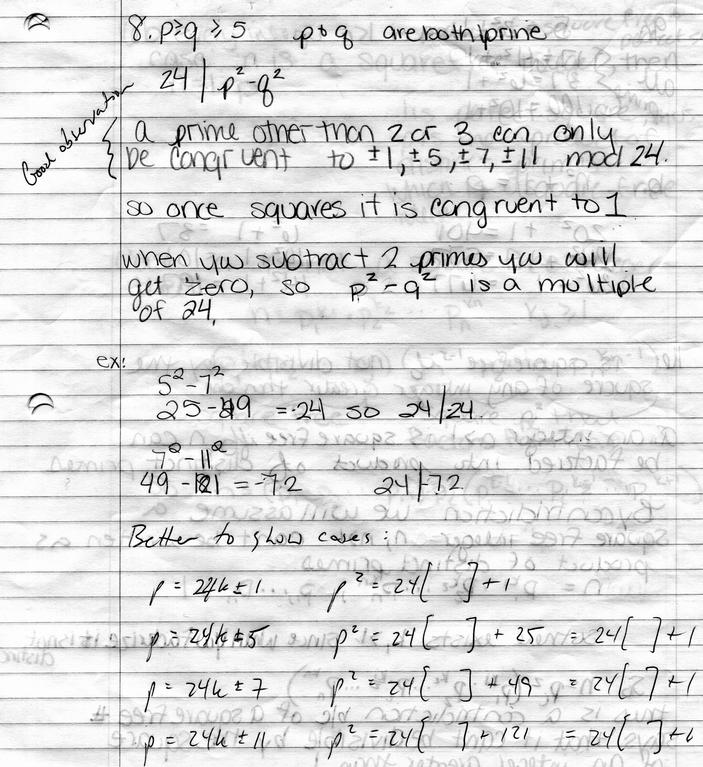 8. p≥q ≥ 5 p + q are both prime
24 | p² - q²
Good observation
a prime other than 2 or 3 can only
be congruent to ±1, ±5, ±7, ±11 mod 24.
so once squares it is congruent to 1
when you subtract 2 primes you will
get zero, so p² - q² is a multiple
of 24.
ex:
5² - 7²
25 - 49 = -24 so 24/-24.
7² - 11²
49 - 121 = -72 24/-72
Better to show cases:
p = 24k ± 1 p² = 24[ ] + 1
p = 24k ± 5 p² = 24[ ] + 25 = 24[ ] + 1
p = 24k ± 7 p² = 24[ ] + 49 = 24[ ] + 1
p = 24k ± 11 p² = 24[ ] + 121 = 24[ ] + 1